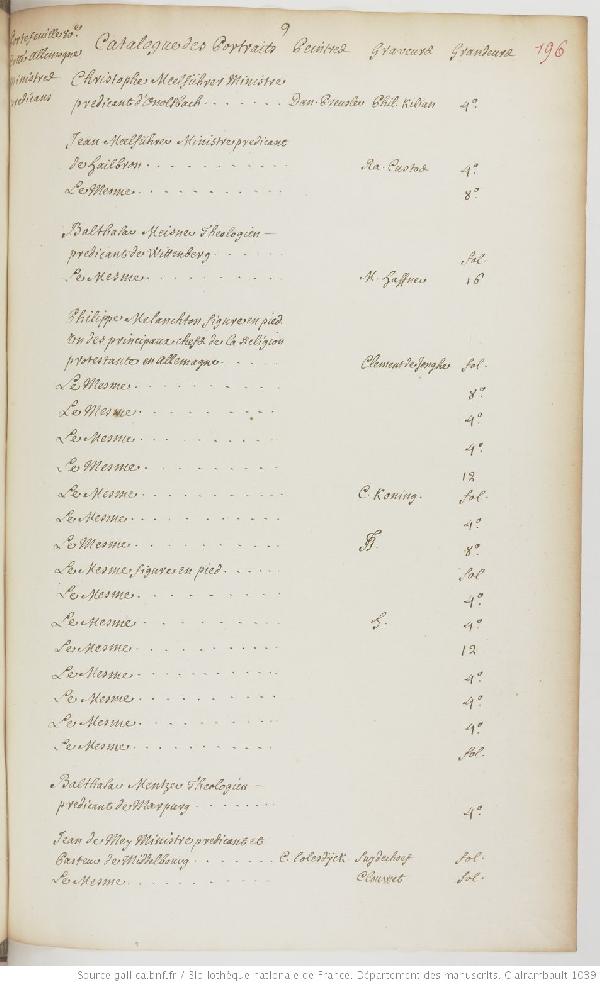 9
portefeuille 80.e
allemagne
ministres
predicans
Catalogue des Portraits Peintres Graveurs Grandeurs 196
Christophe Meelführer Ministre
predicant d'Onoltzbach . . . . . . . Dan. Preusler Phil. Kilian 4.o
Jean Meelführer Ministre predicant
de Hailbron . . . . . . . . . Ra. Custod 4.o
Le Mesme . . . . . . . . . . 8.o
Balthalar Meisner Theologien
predicant de Wittenberg . . . . . . fol.
Le Mesme . . . . . . . . . . M. Haffner 16
Philippe Melanchton figure en pied
Un des principaux chefs de la Religion
protestante en Allemagne . . . . . Clement de Jonghe fol.
Le Mesme . . . . . . . . . . 8.o
Le Mesme . . . . . . . . . . 4.o
Le Mesme . . . . . . . . . . 4.o
Le Mesme . . . . . . . . . . 12
Le Mesme . . . . . . . . . . C. Koning. fol.
Le Mesme . . . . . . . . . . 4.o
Le Mesme . . . . . . . . . . 8.o
Le Mesme figure en pied . . . . . fol
Le Mesme . . . . . . . . . . 4.o
Le Mesme . . . . . . . . . . 4.o
Le Mesme . . . . . . . . . . 12
Le Mesme . . . . . . . . . . 4.o
Le Mesme . . . . . . . . . . 4.o
Le Mesme . . . . . . . . . . 4.o
Le Mesme . . . . . . . . . . fol.
Balthalar Mentzer Theologien
predicant de Marpurg . . . . . . . 4.o
Jean de Mey Ministre predicant et
Pasteur de Middelbourg . . . . . . . C. Eolesdyck Suyderhoef fol.
Le Mesme . . . . . . . . . . Clouwet fol.
Source gallica.bnf.fr / Bibliothèque nationale de France. Département des manuscrits. Clairambault 1039